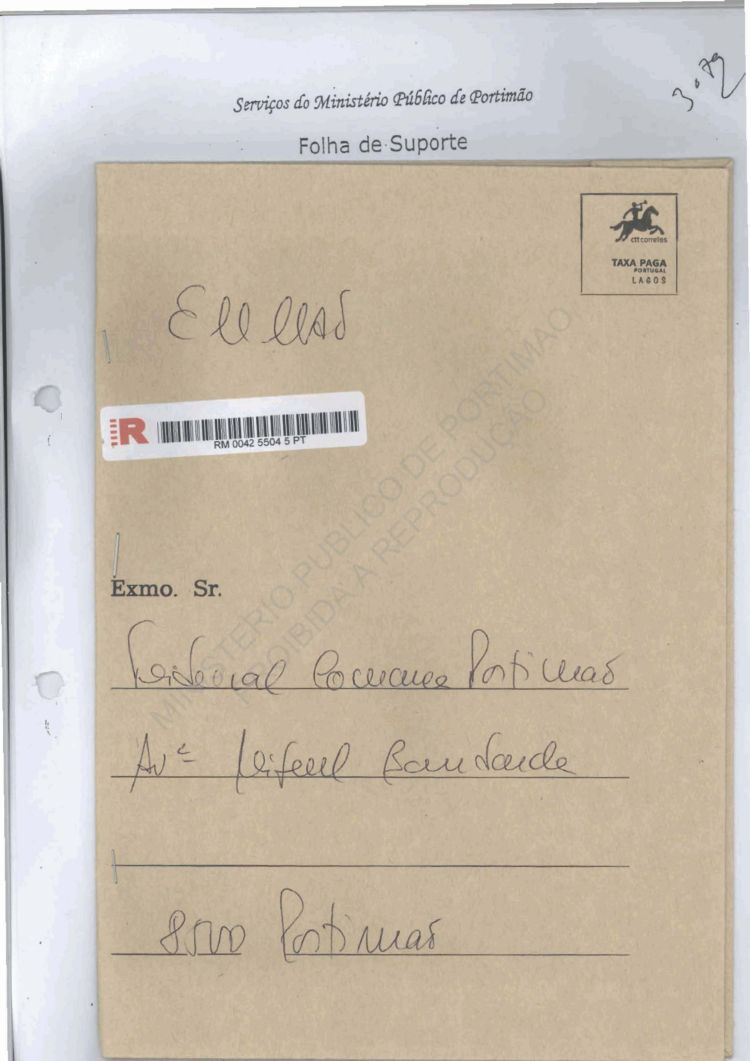 Serviços do Ministério Público de Portimão
Folha de Suporte
ctt correios
TAXA PAGA
PORTUGAL
LAGOS
R
RM 0042 5504 5 PT
MINISTÉRIO PUBLICO DE PORTIMAO
PROIBIDA A REPRODUÇÃO
Exmo. Sr.
Tribunal Comarca Portimão
Avª Miguel Bombarda
8500 Portimão